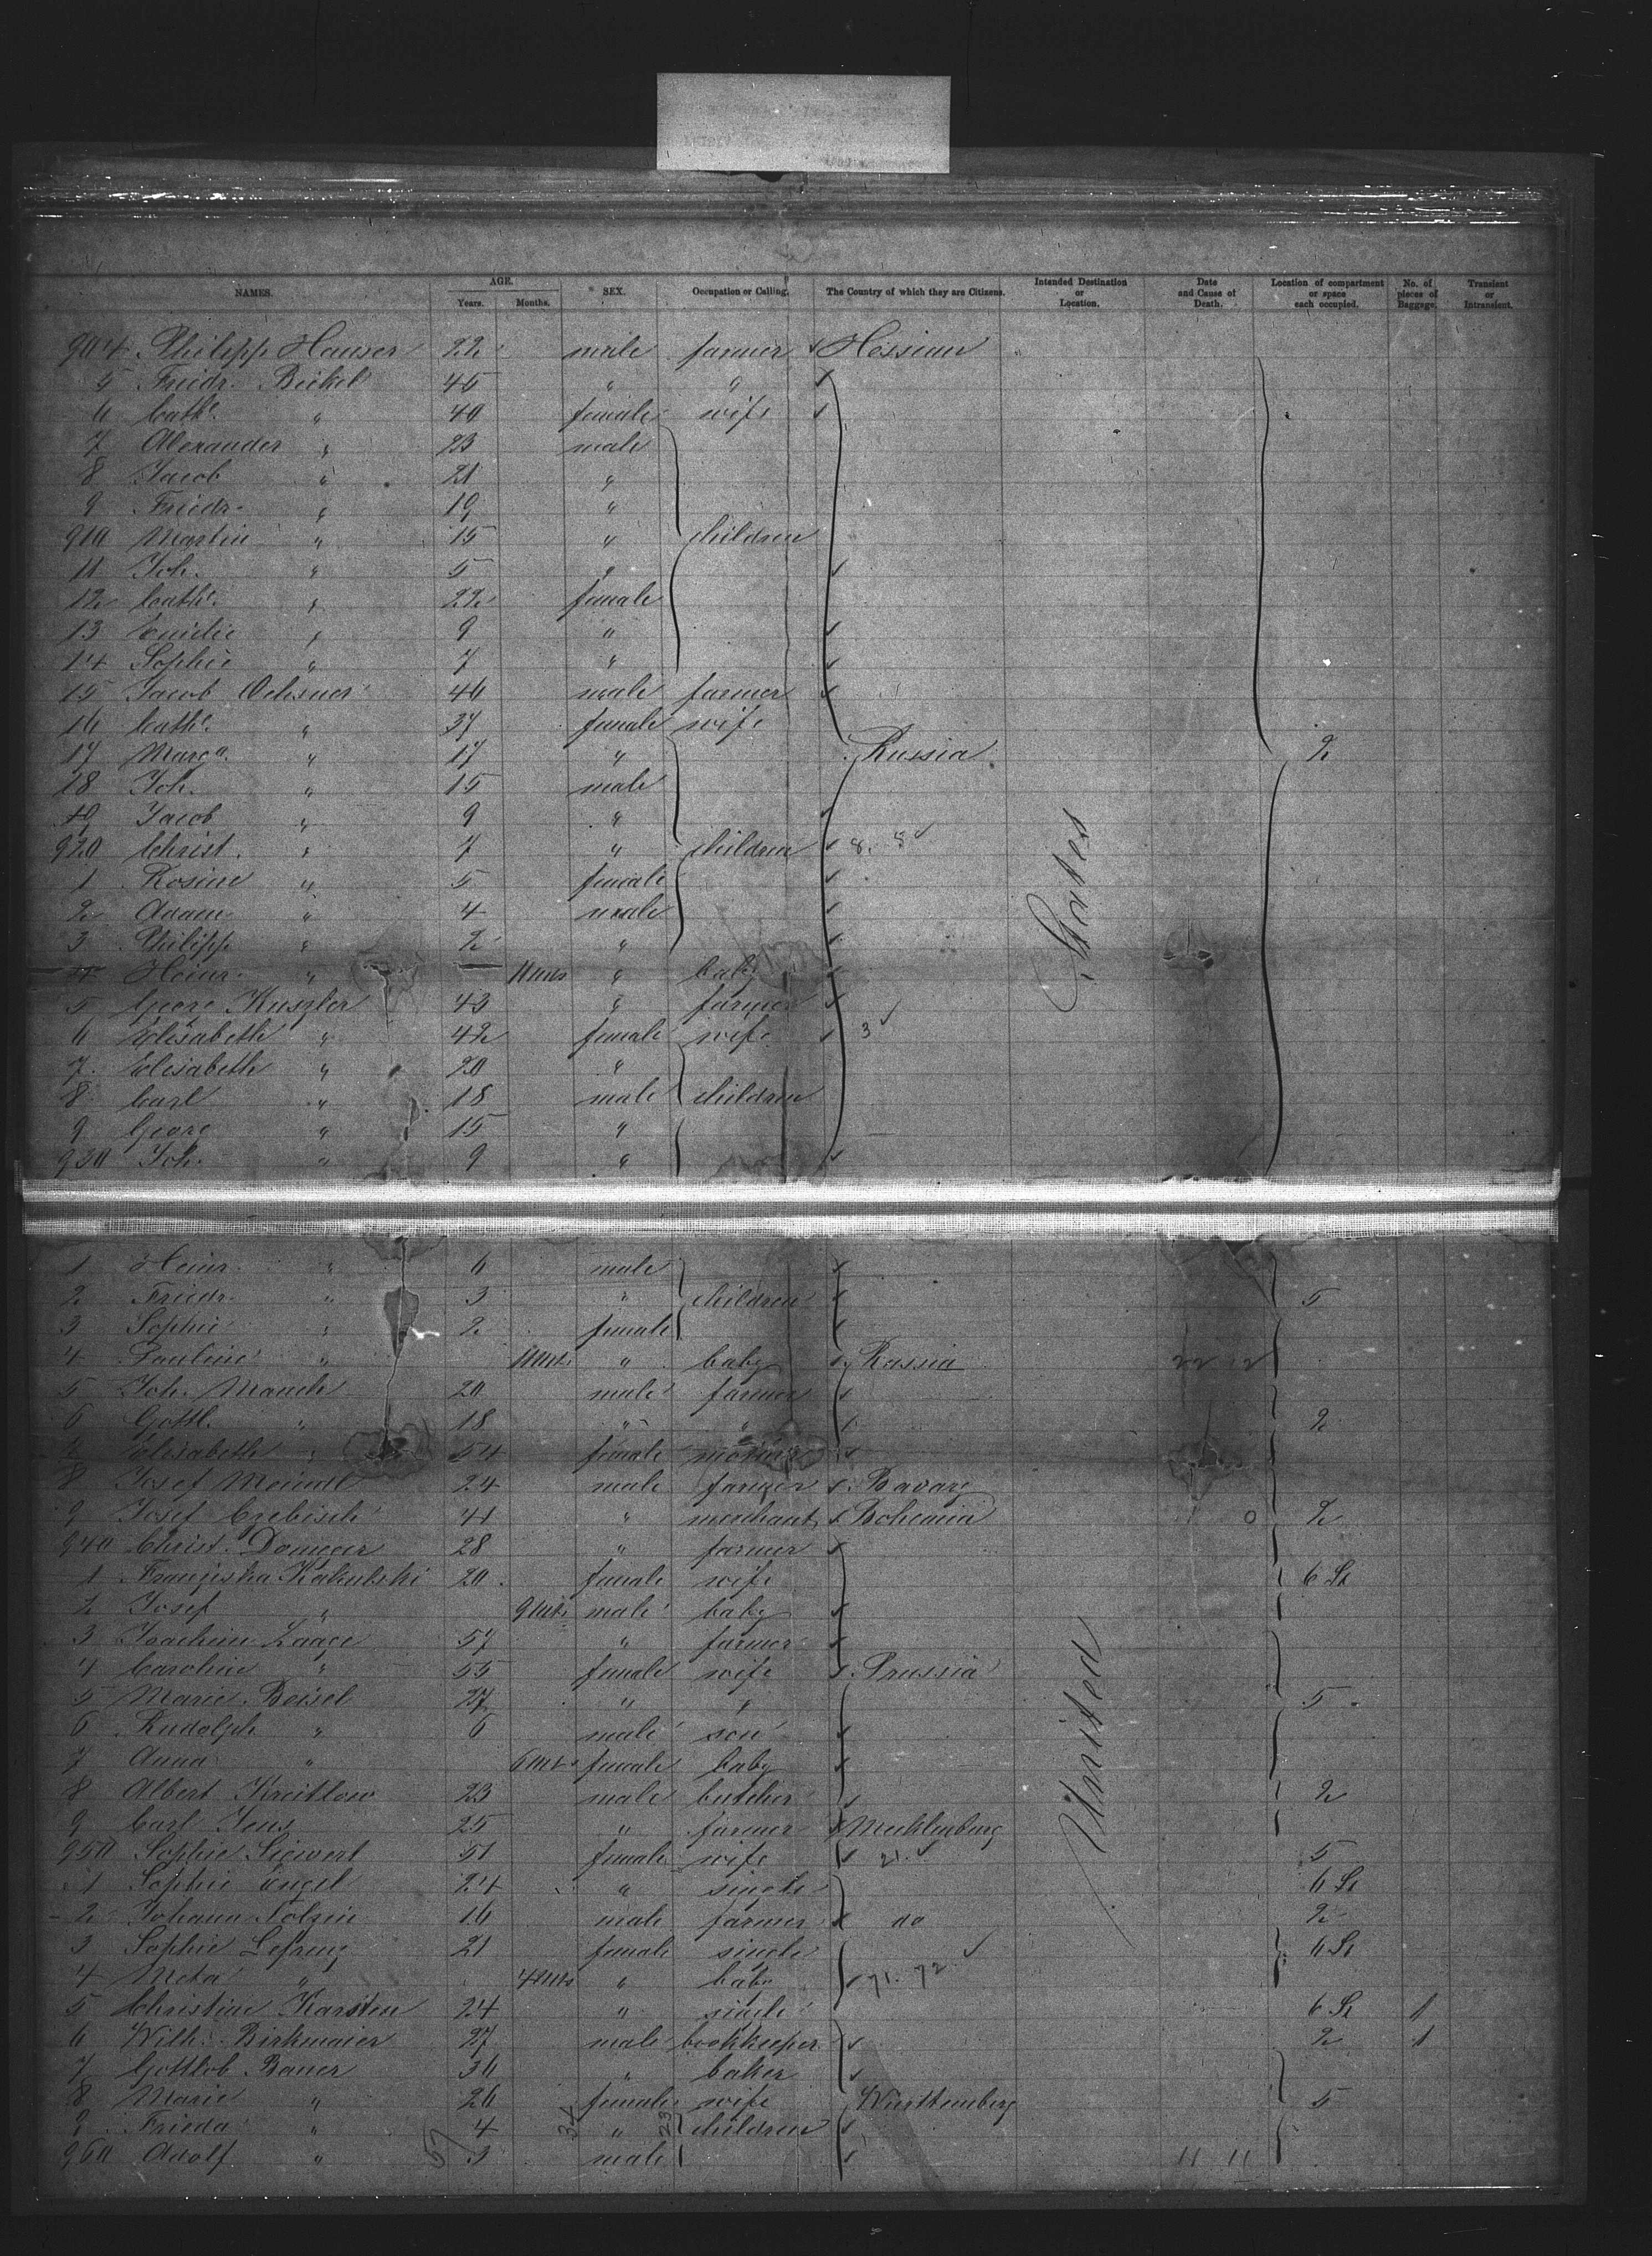 NAMES. AGE. Years. Months. SEX. Occupation or Calling. The Country of which they are Citizens. Intended Destination or Location. Date and Cause of Death. Location of compartment or space each occupied. No. of pieces of Baggage. Transient or Intransient.
904 Philipp Hauser 22 male farmer Hessian
5 Friedr. Beikel 45 " "
6 Cathe. " 40 female wife
7 Alexander " 23 male
8 Jacob " 21 "
9 Friedr. " 19 "
910 Martin " 15 " children
11 Joh. " 5 "
12 Cathe. " 22 female
13 Emilie " 9 "
14 Sophie " 7 "
15 Jacob Ochsner 46 male farmer
16 Cathe. " 37 female wife
17 Marga. " 17 " Russia 2
18 Joh. " 15 male
19 Jacob " 9 "
920 Christ. " 7 " children 8. 8
1 Rosine " 5 female
2 Adam " 4 male
3 Philipp " 2 "
4 Heinr. " — 11 mts " baby
5 Georg Kuszler 43 " farmer
6 Elisabeth " 42 female wife 3
7 Elisabeth " 20 "
8 Carl " 18 male children
9 Georg " 15 "
930 Joh. " 9 "
1 Heinr. " 6 male
2 Friedr. " 3 " children 5
3 Sophie " 2 female
4 Pauline " 11 mts. " baby Russia
5 Joh. Mauch 20 male farmer
6 Gottl. " 18 " " 2
7 Elisabeth " 54 female mother
8 Josef Meindl 24 male farmer Bavary
9 Josef Czebisch 41 " merchant Bohemia 0 2
940 Christ. Domeger 28 " farmer
1 Franziska Kakutski 20 female wife 6 St
2 Josef " 9 mts male baby
3 Joachim Laage 57 " farmer
4 Caroline " 55 female wife Prussia
5 Marie Beisel 27 " " 5
6 Rudolph " 6 male son
7 Anna " 6 mts female baby
8 Albert Kreitlow 23 male butcher 2
9 Carl Jens 25 " farmer Mecklenburg
950 Sophie Siewert 51 female wife 21. 5
1 Sophie Engel 24 " single 6 St
2 Johann Nölzin 16 male farmer do 2
3 Sophie Lefrenz 21 female single 6 St
4 Meta " 4 mts " baby 71. 72
5 Christine Karsten 24 " single 6 St 1
6 Wilh. Birkmaier 27 male bookkeeper 2 1
7 Gottlob Bauer 30 " baker
8 Marie " 26 female wife Württemberg 5
9 Frieda " 4 " children
960 Adolf " 3 male 11 11
United States